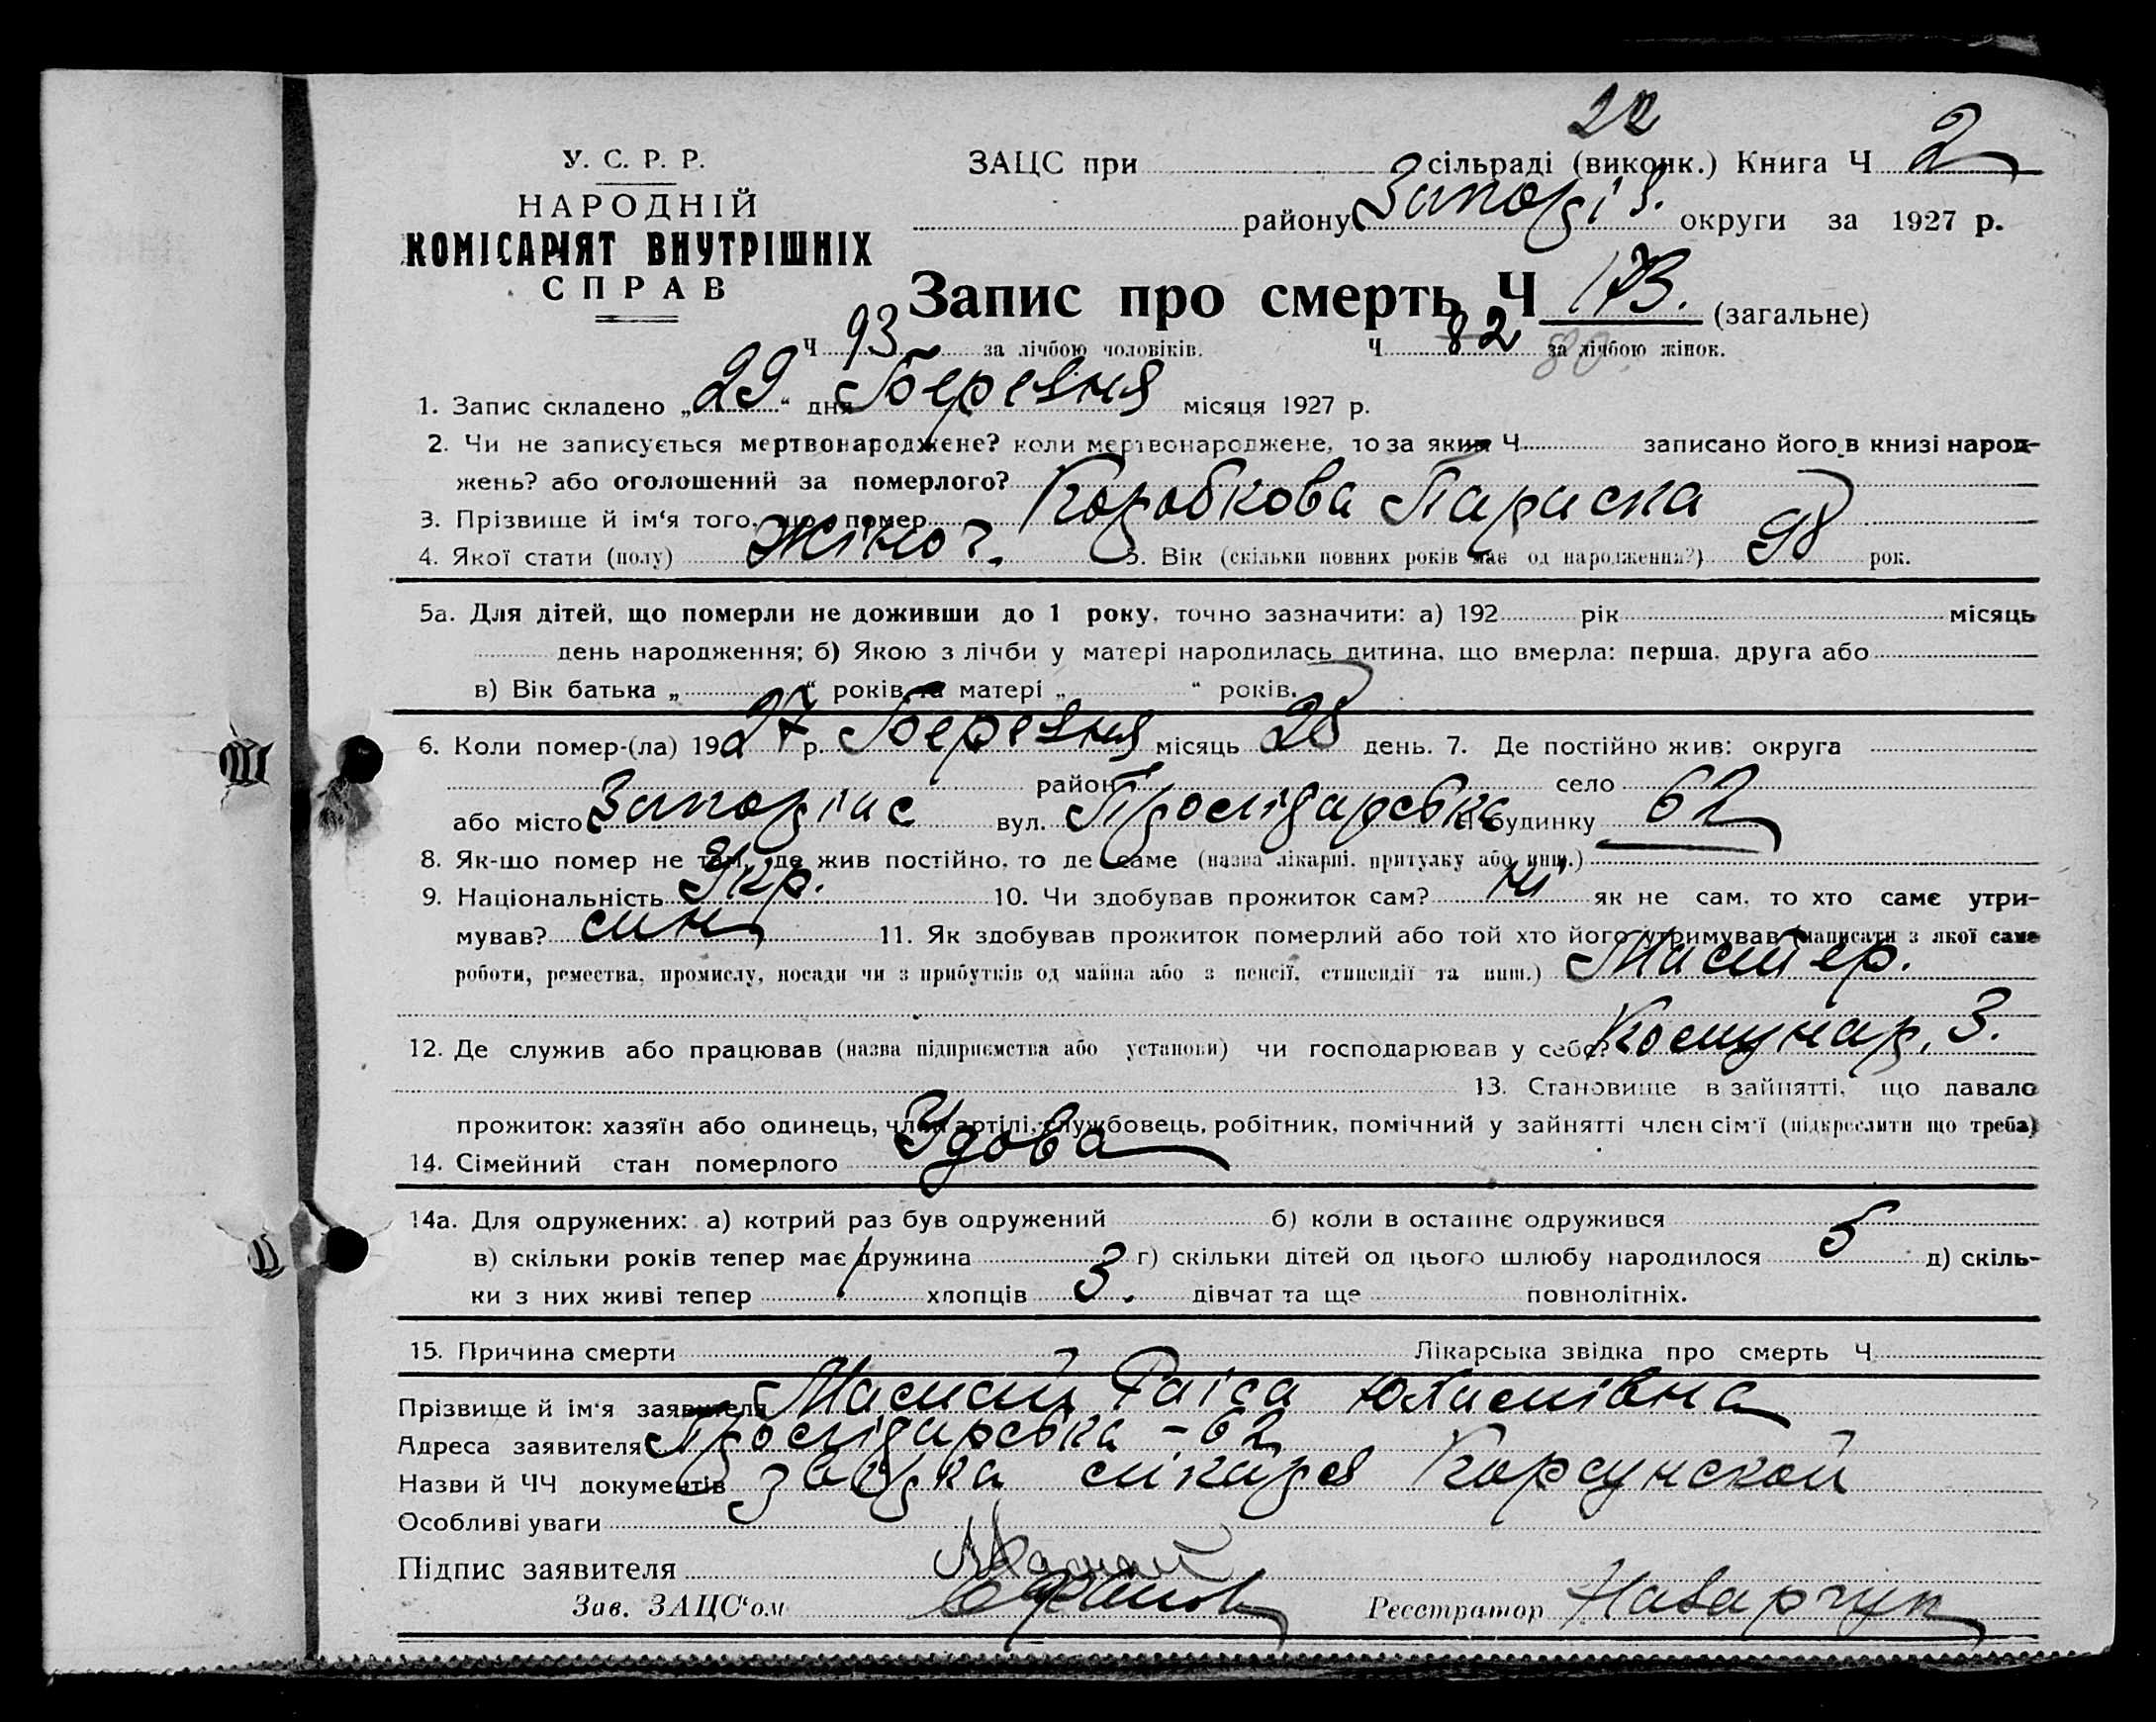 22
У. С. Р. Р.
НАРОДНІЙ
КОМІСАРІЯТ ВНУТРІШНІХ
СПРАВ
ЗАЦС при сільраді (виконк.) Книга Ч 2
району Запоріз. округи за 1927 р.
Запис про смерть Ч 173. (загальне)
Ч 93 за лічбою чоловіків. Ч 82 за лічбою жінок.
80
1. Запис складено „29“ дня Березня місяця 1927 р.
2. Чи не записується мертвонароджене? коли мертвонароджене, то за яким Ч записано його в книзі народ-
жень? або оголошений за померлого?
3. Прізвище й ім‘я того, що помер Коробкова Параска
4. Якої стати (полу) Жіноч. 5. Вік (скільки повних років має од народження?) 98 рок.
5а. Для дітей, що померли не доживши до 1 року, точно зазначити: а) 192 рік місяць
день народження; б) Якою з лічби у матері народилась дитина, що вмерла: перша, друга або
в) Вік батька „ “ років та матері „ “ років.
6. Коли помер-(ла) 1927 р. Березня місяць 28 день. 7. Де постійно жив: округа
район село
або місто Запоріжє вул. Пролідарська № будинку 62
8. Як-що помер не там, де жив постійно, то де саме (назва лікарні, притулку або инш.)
9. Національність Укр. 10. Чи здобував прожиток сам? ні як не сам, то хто саме утри-
мував? син 11. Як здобував прожиток померлий або той хто його утримував (написати з якої саме
роботи, ремества, промислу, посади чи з прибутків од майна або з пенсії, стипендії та инш.) Мастер.
12. Де служив або працював (назва підприємства або установи) чи господарював у себе? Комунар, З.
13. Становище в зайнятті, що давало
прожиток: хазяїн або одинець, член артілі, службовець, робітник, помічний у зайнятті член сім‘ї (підкреслити що треба)
14. Сімейний стан померлого Удова
14а. Для одружених: а) котрий раз був одружений б) коли в останнє одружився
в) скільки років тепер має дружина г) скільки дітей од цього шлюбу народилося 5 д) скіль-
ки з них живі тепер 1 хлопців 3. дівчат та ще повнолітніх.
15. Причина смерти Лікарська звідка про смерть Ч
Прізвище й ім‘я заявителя Раіса
Адреса заявителя Пролідарська - 62
Назви й ЧЧ документів звідка лікаря Корсунской
Особливі уваги
Підпис заявителя
Зав. ЗАЦС‘ом Реєстратор Наварчук